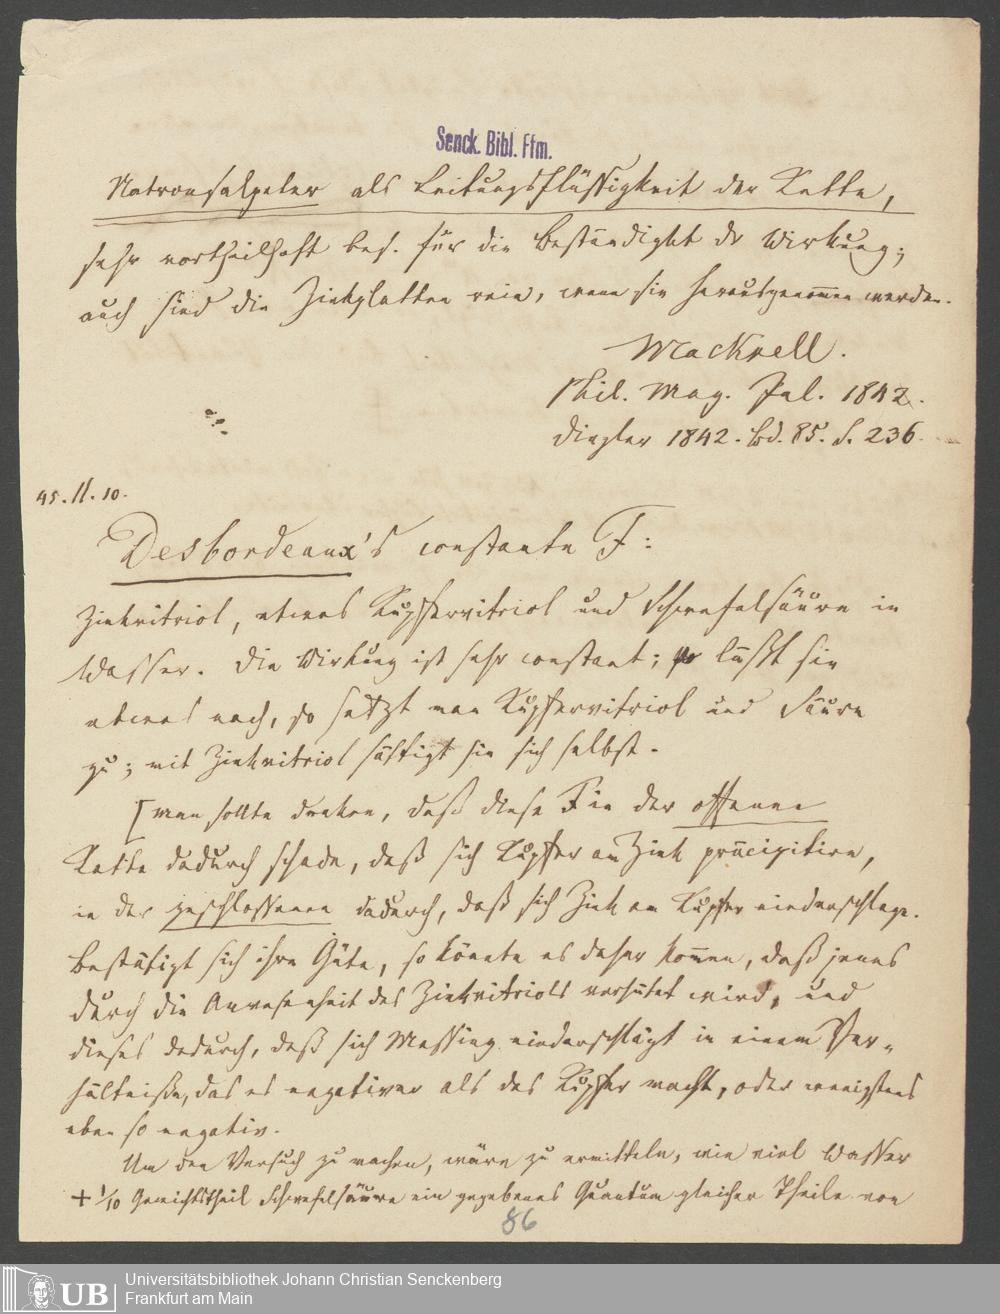 Senck. Bibl. Ffm.
Natronsalpeter als Leitungsflüssigkeit der Kette,
sehr vortheilhaft bes. für die Beständigkt dr Wirkung;
auch sind die Zinkplatten rein, wenn sie herausgenommen werden.
Mackrell.
Phil. Mag. Jul. 1842.
Dingler 1842. Bd. 85. S. 236.
45. II. 10.
Desbordeaux's constante F:
Zinkvitriol, etwas Kupfervitriol und Schwefelsäure in
Wasser. Die Wirkung ist sehr constant; läßt sie
etwas nach, so setzt man Kupfervitriol und Säure
zu; mit Zinkvitriol sättigt sie sich selbst.
[man sollte denken, daß diese F in der offenen
Kette dadurch schade, daß sich Kupfer am Zink präcipitire,
in der geschlossenen dadurch, daß sich Zink am Kupfer niederschlage.
Bestätigt sich ihre Güte, so könnte es daher kommen, daß jenes
durch die Anwesenheit des Zinkvitriols verhütet wird, und
dieses dadurch, daß sich Messing niederschlägt in einem Ver-
hältnisse, das es negativer als das Kupfer macht, oder wenigstens
eben so negativ.
Um den Versuch zu machen, wäre zu ermitteln, wie viel Wasser
+ 1/10 Gewichtstheil Schwefelsäure ein gegebenes Quantum gleicher Theile von
86
UB
Universitätsbibliothek Johann Christian Senckenberg
Frankfurt am Main